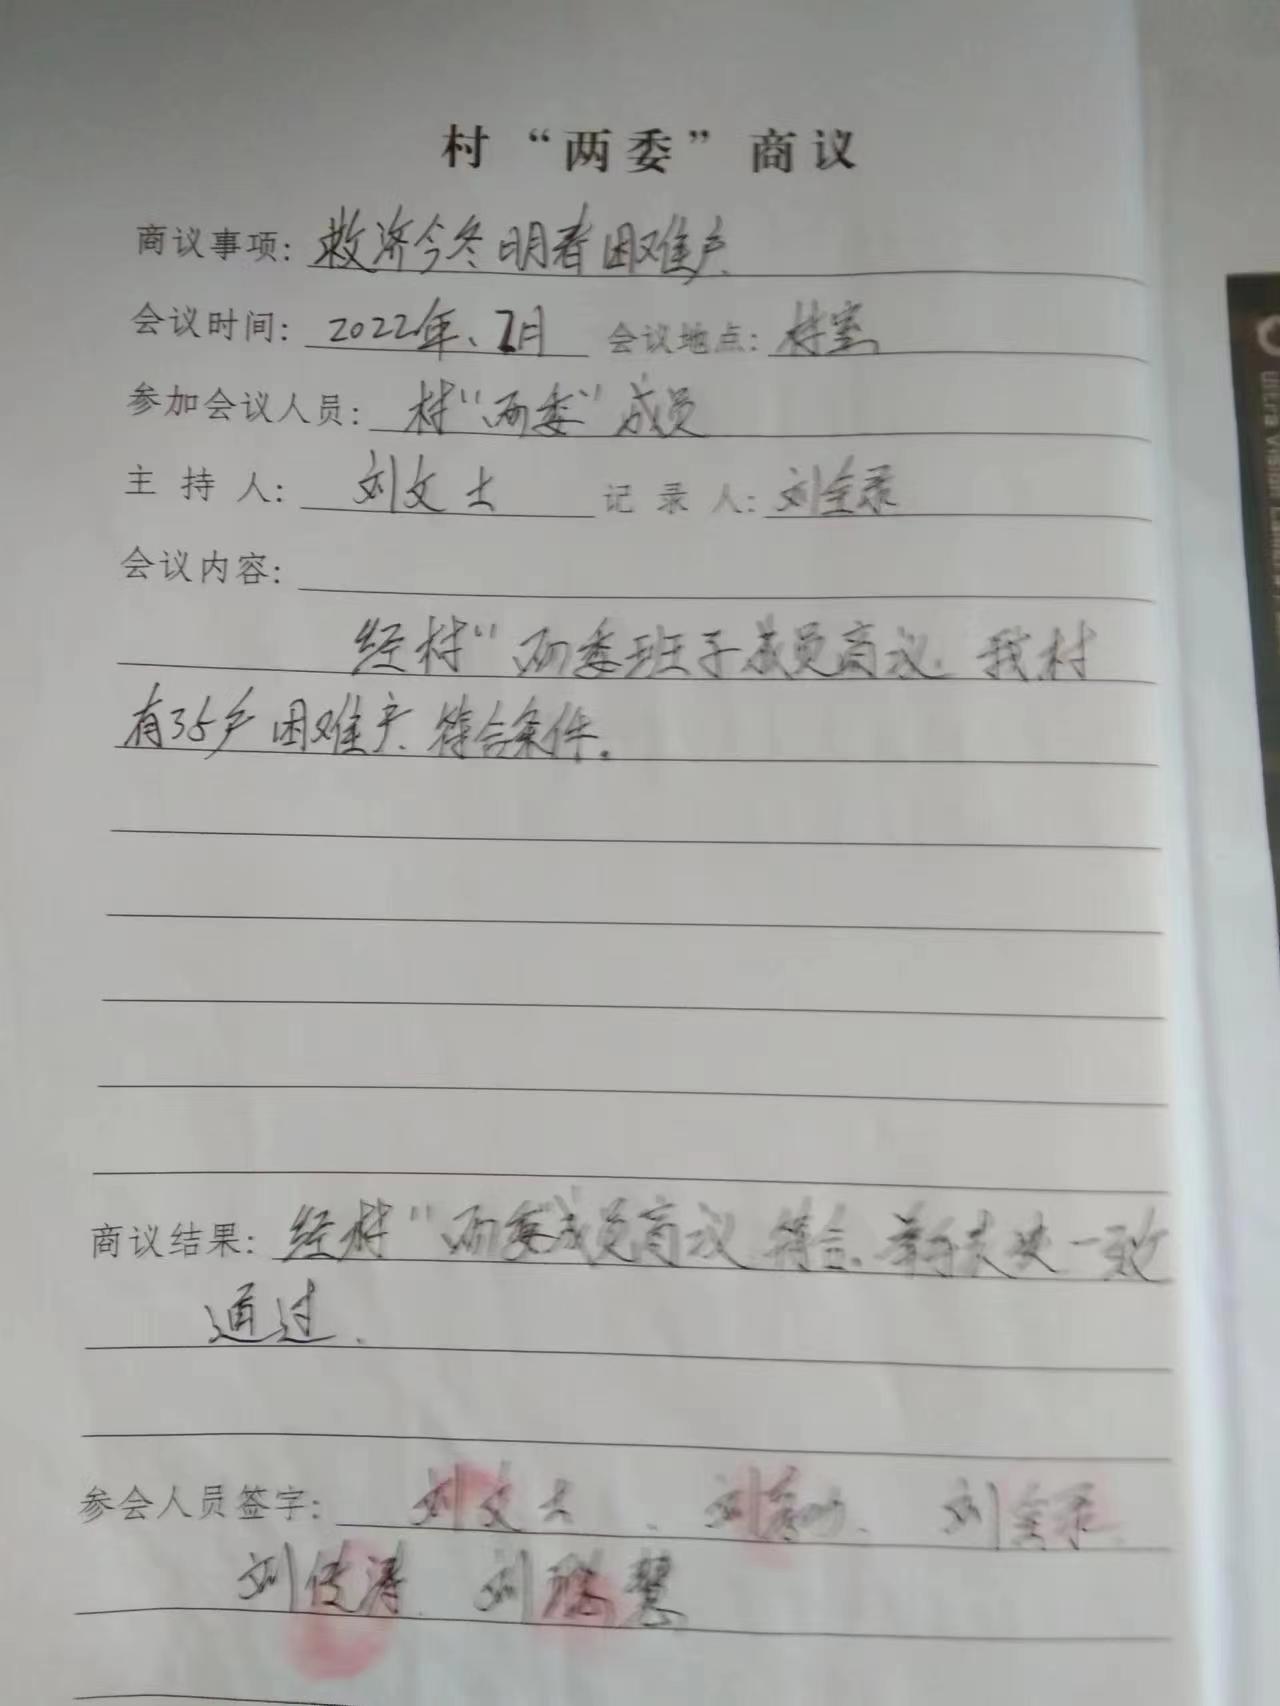 村“两委”商议
商议事项：救济今冬明春困难户
会议时间：2022年、7月 会议地点：村室
参加会议人员：村“两委”成员
主持人：刘文士 记录人：刘全录
会议内容：
经村“两委班子成员商议、我村
有35户困难户、符合条件。
商议结果：经村“两委成员商议 符合、举手表决一致
通过、
参会人员签字：刘文士、刘 、刘全录、
刘传涛、刘 慧